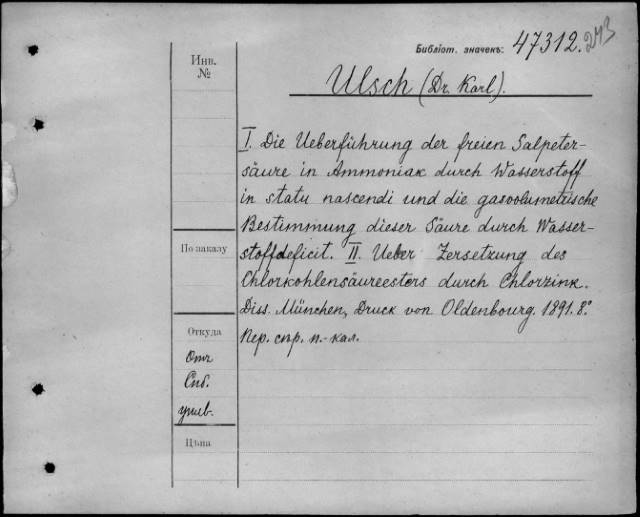 Библіот. значекъ: 47312. 273
Инв.
№
Ulsch (Dr. Karl).
I. Die Ueberführung der freien Salpeter-
säure in Ammoniak durch Wasserstoff
in statu nascendi und die gasvolumetrische
Bestimmung dieser Säure durch Wasser-
stoffdeficit. II. Ueber Zersetzung des
Chlorkohlensäureesters durch Chlorzink.
Diss. München, Druck von Oldenbourg. 1891. 8º.
Пер. спр. п.-кал.
По заказу
Откуда
Отч
Спб.
унив.
Цѣна